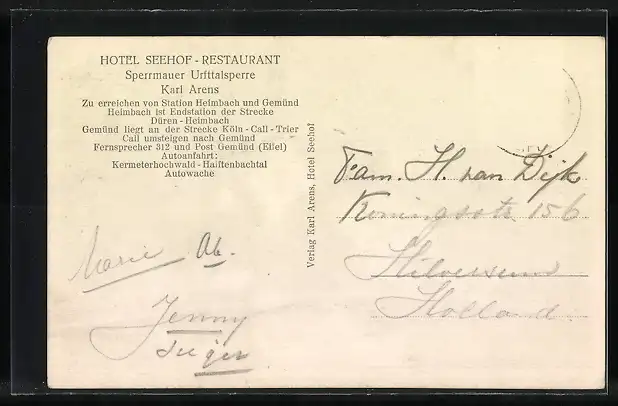 HOTEL SEEHOF - RESTAURANT
Sperrmauer Urfttalsperre
Karl Arens
Zu erreichen von Station Heimbach und Gemünd
Heimbach ist Endstation der Strecke
Düren - Heimbach
Gemünd liegt an der Strecke Köln - Call - Trier
Call umsteigen nach Gemünd
Fernsprecher 312 und Post Gemünd (Eifel)
Autoanfahrt:
Kermeterhochwald - Halftenbachtal
Autowache
Verlag Karl Arens, Hotel Seehof
Fam. H. van Dijk
Koningsstr. 156
Hilversum
Holland.
Marie
Jenny